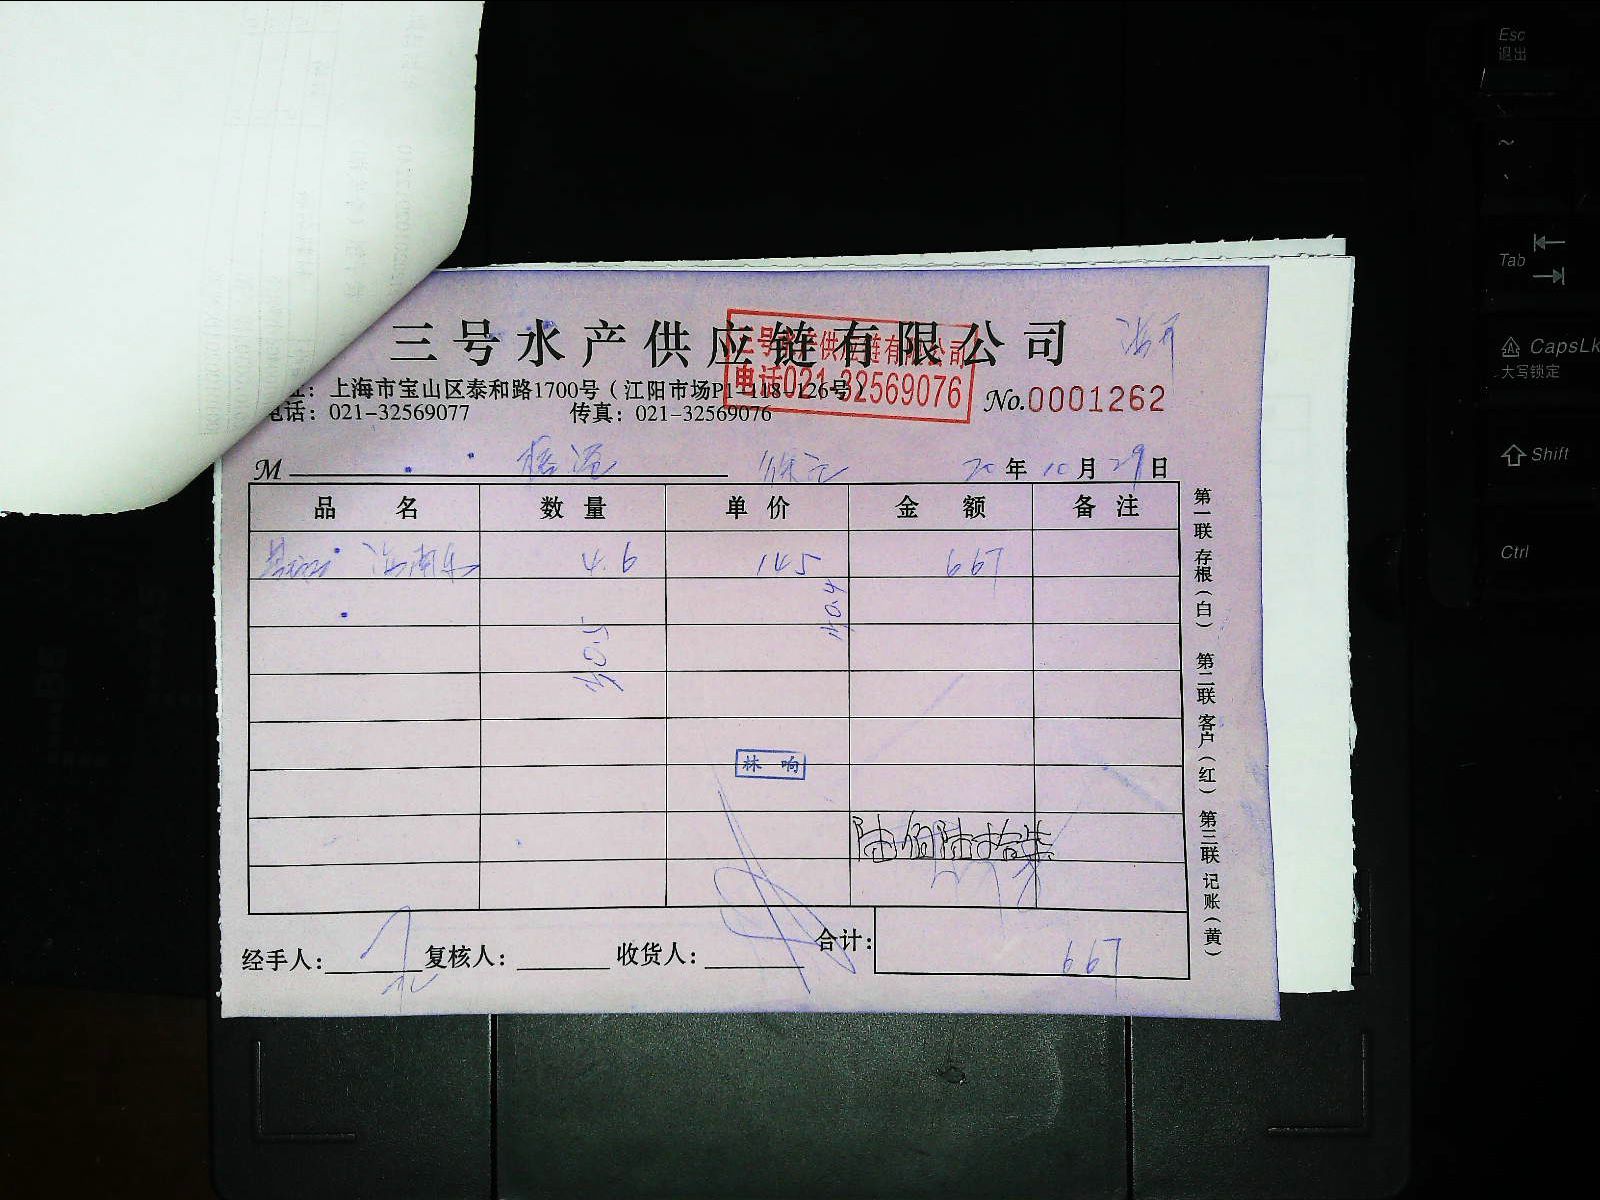 三号水产供应链有限公司
三号水产供应链有限公司
电话021-32569076
址：上海市宝山区泰和路1700号（江阳市场P1-118-126号）
电话：021-32569077 传真：021-32569076
No.0001262
M 20年10月29日
品名 数量 单价 金额 备注
4.6 145 667
林 响
陆佰陆拾柒
经手人： 复核人： 收货人： 合计： 667
第一联 存根（白） 第二联 客户（红） 第三联 记账（黄）
Esc
退出
~
Tab
CapsLk
大写锁定
Shift
Ctrl